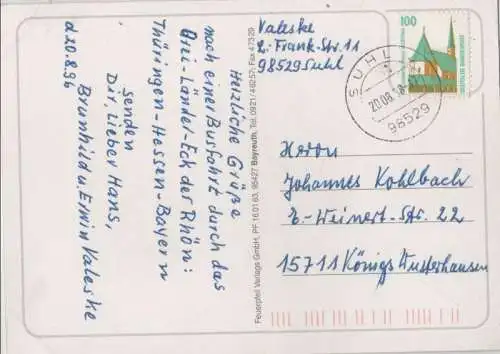 Herzliche Grüße
nach einer Busfahrt durch das
Drei-Länder-Eck der Rhön:
Thüringen-Hessen-Bayern
senden
Dir, lieber Hans,
Brunhild u. Erwin Valeske
d 20.8.96
Feuerpfeil Verlags GmbH, PF 16 01 63, 95427 Bayreuth, Tel. 0921/46257, Fax 47320
Valeske
L.-Frank-Str. 11
98529 Suhl
100
SUHL
20.08.
98529
Herrn
Johannes Kohlbach
E-Weinert-Str. 22
15711 Königs Wusterhausen